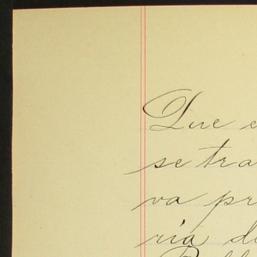 Que e
se tra
va pr
ria d